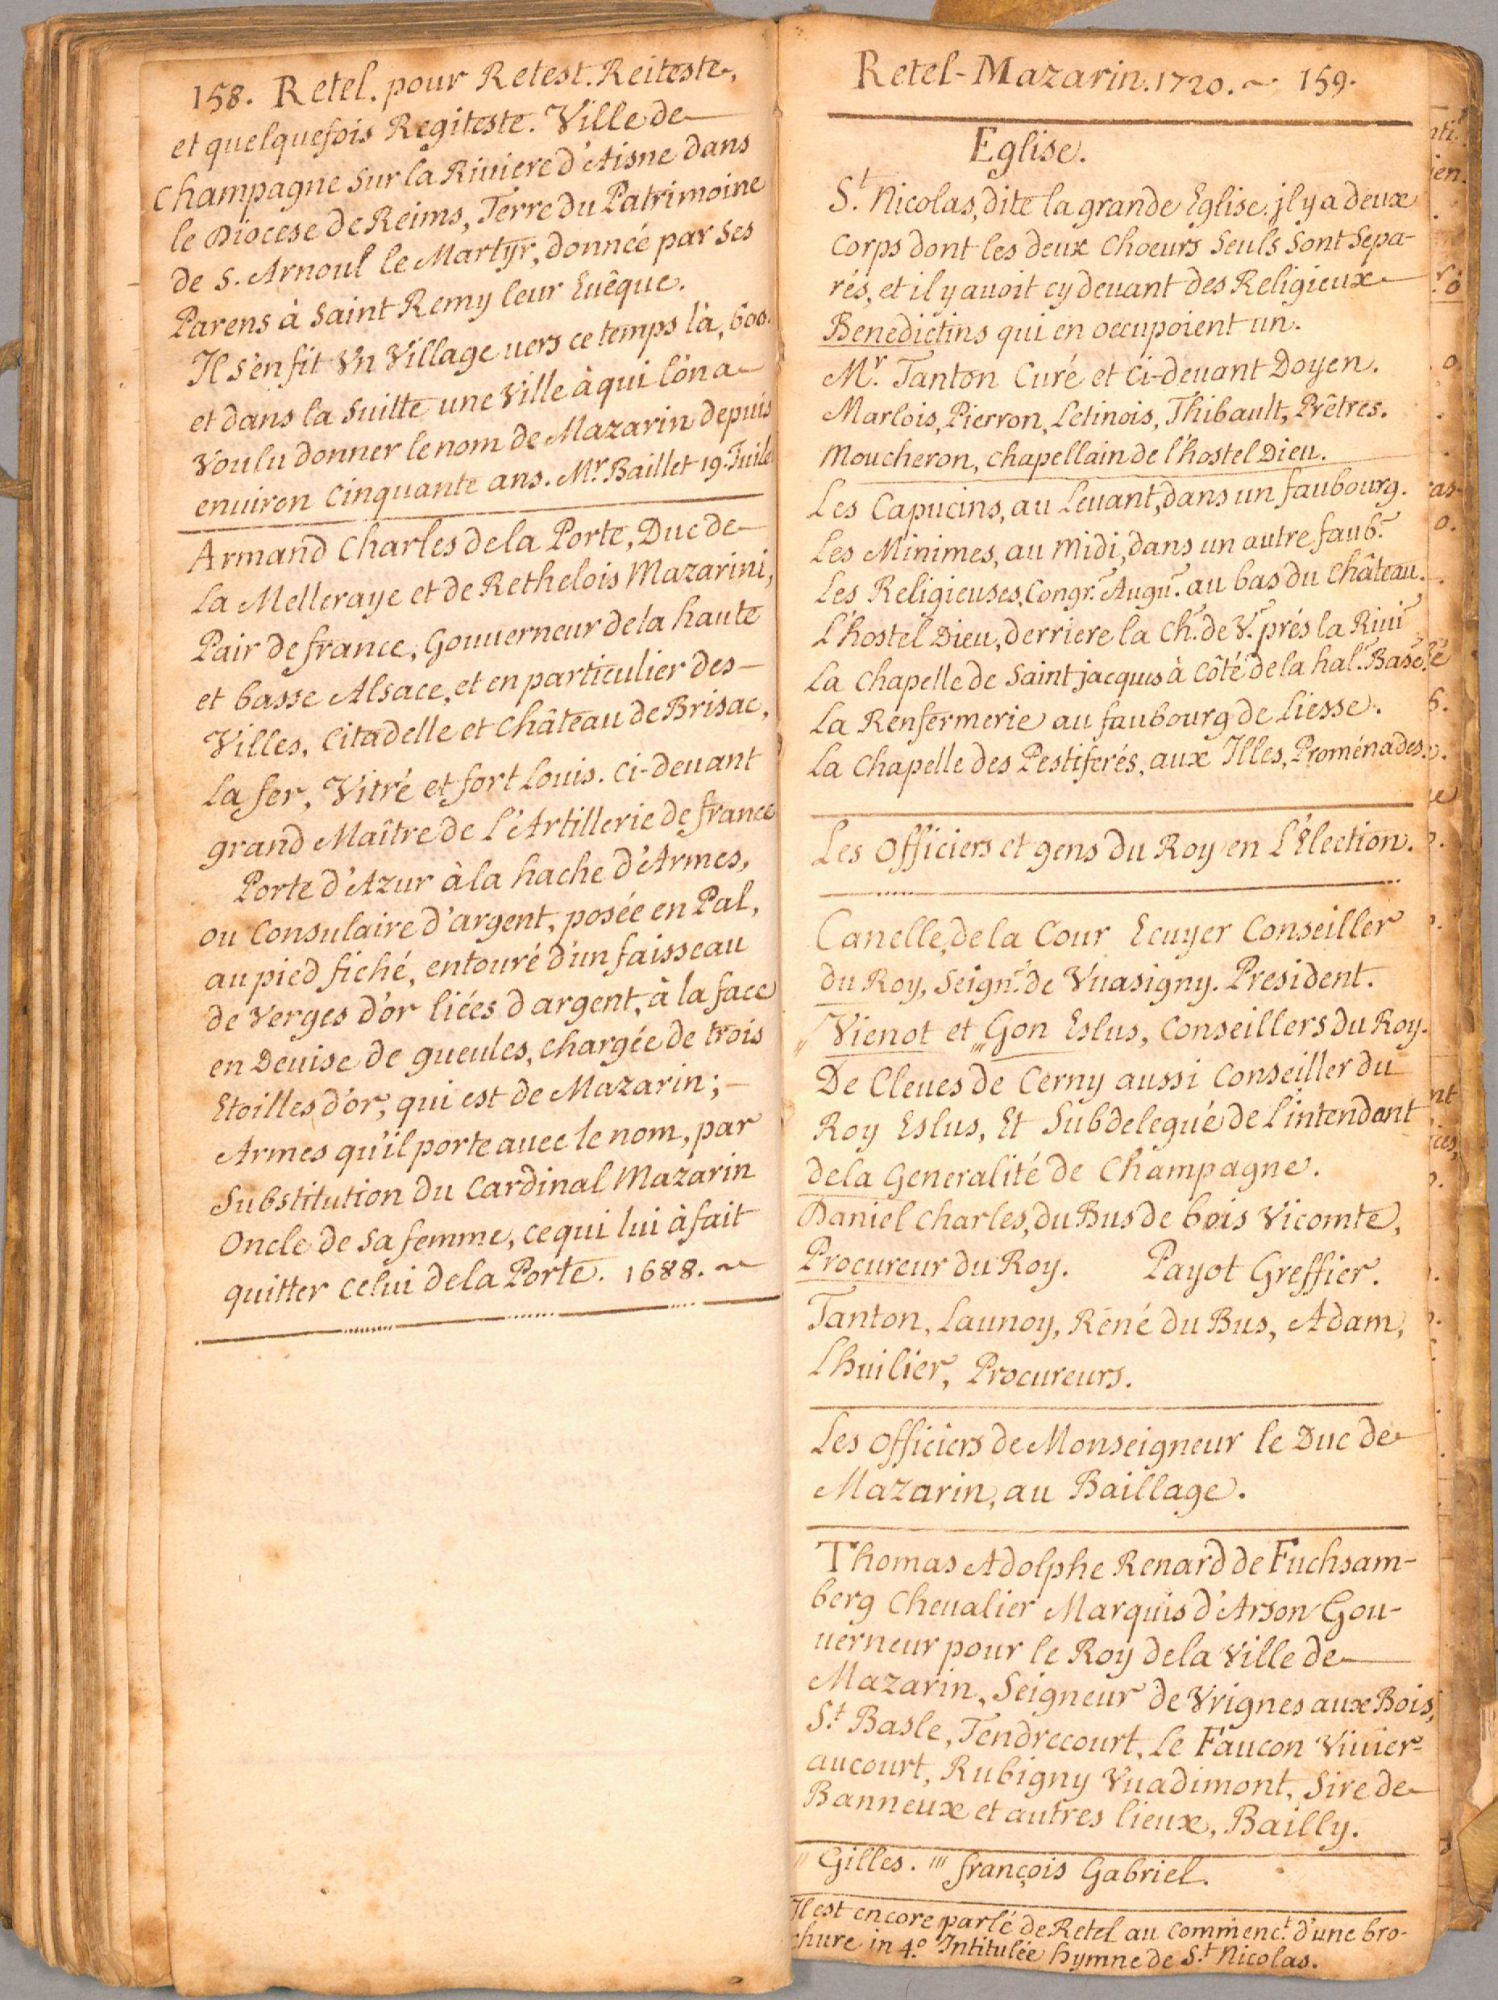 158. Retel. pour Retest. Reiteste,
et quelquefois Regiteste. Ville de
Champagne sur la Riviere d'Aisne dans
le Diocese de Reims, Terre du Patrimoine
de S. Arnoul le Martyr, donnée par ses
Parens à Saint Remy leur Evêque.
Il s'en fit Vn Village vers ce temps là, 600.
et dans la suitte une Ville à qui l'on a
voulu donner le nom de Mazarin depuis
environ Cinquante ans. Mr. Baillet 19. Juil.
Armand Charles de la Porte, Duc de
La Melleraye et de Rethelois Mazarini,
Pair de france, Gouverneur de la haute
et basse Alsace, et en particulier des
Villes, Citadelle et Château de Brisac,
La fer, Vitré et fort Louis. Ci-devant
grand Maître de l'Artillerie de france
Porte d'Azur à la hache d'Armes,
ou Consulaire d'argent, posée en Pal,
au pied fiché, entouré d'un faisseau
de Verges d'or liées d'argent, à la face
en Devise de gueules, chargée de trois
Etoilles d'or, qui est de Mazarin;
Armes qu'il porte avec le nom, par
Substitution du Cardinal Mazarin
Oncle de sa femme, ce qui lui à fait
quitter celui de la Porte. 1688. ~
Retel-Mazarin. 1720. ~ 159.
Eglise.
St. Nicolas, dite la grande Eglise. jl y a deux
Corps dont les deux Choeurs seuls sont sepa-
rés, et il y avoit cy devant des Religieux
Benedictins qui en occupoient un.
Mr. Tanton Curé et Ci-devant Doyen.
Marlois, Pierron, Letinois, Thibault, Prêtres.
Moucheron, chapellain de l'hostel Dieu.
Les Capucins, au Levant, dans un faubourg.
Les Minimes, au midi, dans un autre faub.
Les Religieuses, Congr. Augu. au bas du Château.
L'hostel Dieu, derriere la Ch. de V. prés la Rivi
La Chapelle de Saint jacques à Côté de la hal. Basse
La Renfermerie au faubourg de Liesse.
La Chapelle des Pestiferés, aux Illes, Proménades.
Les Officiers et gens du Roy en L'Election.
Canelle, de la Cour Ecuyer Conseiller
du Roy, Seign. de Vuasigny. President.
" Vienot et ''' Gon Eslus, Conseillers du Roy.
De Cleves de Cerny aussi Conseiller du
Roy Eslus, Et Subdelegué de l'intendant
de la Generalité de Champagne.
Daniel Charles, du Bus de bois Vicomte,
Procureur du Roy. Payot Greffier.
Tanton, Launoy, René du Bus, Adam,
Lhuilier, Procureurs.
Les Officiers de Monseigneur le Duc de
Mazarin, au Baillage.
Thomas Adolphe Renard de Fuchsam-
berg Chevalier Marquis d'Arson Gou-
verneur pour le Roy de la Ville de
Mazarin, Seigneur de Vrignes aux Bois,
St. Basle, Tendrecourt, Le Faucon Vivier-
aucourt, Rubigny Vuadimont, Sire de
Banneux et autres lieux, Bailly.
" Gilles. ''' françois Gabriel.
Il est encore parlé de Retel au commenct. d'une bro-
chure in 4º. Intitulée hymne de St. Nicolas.